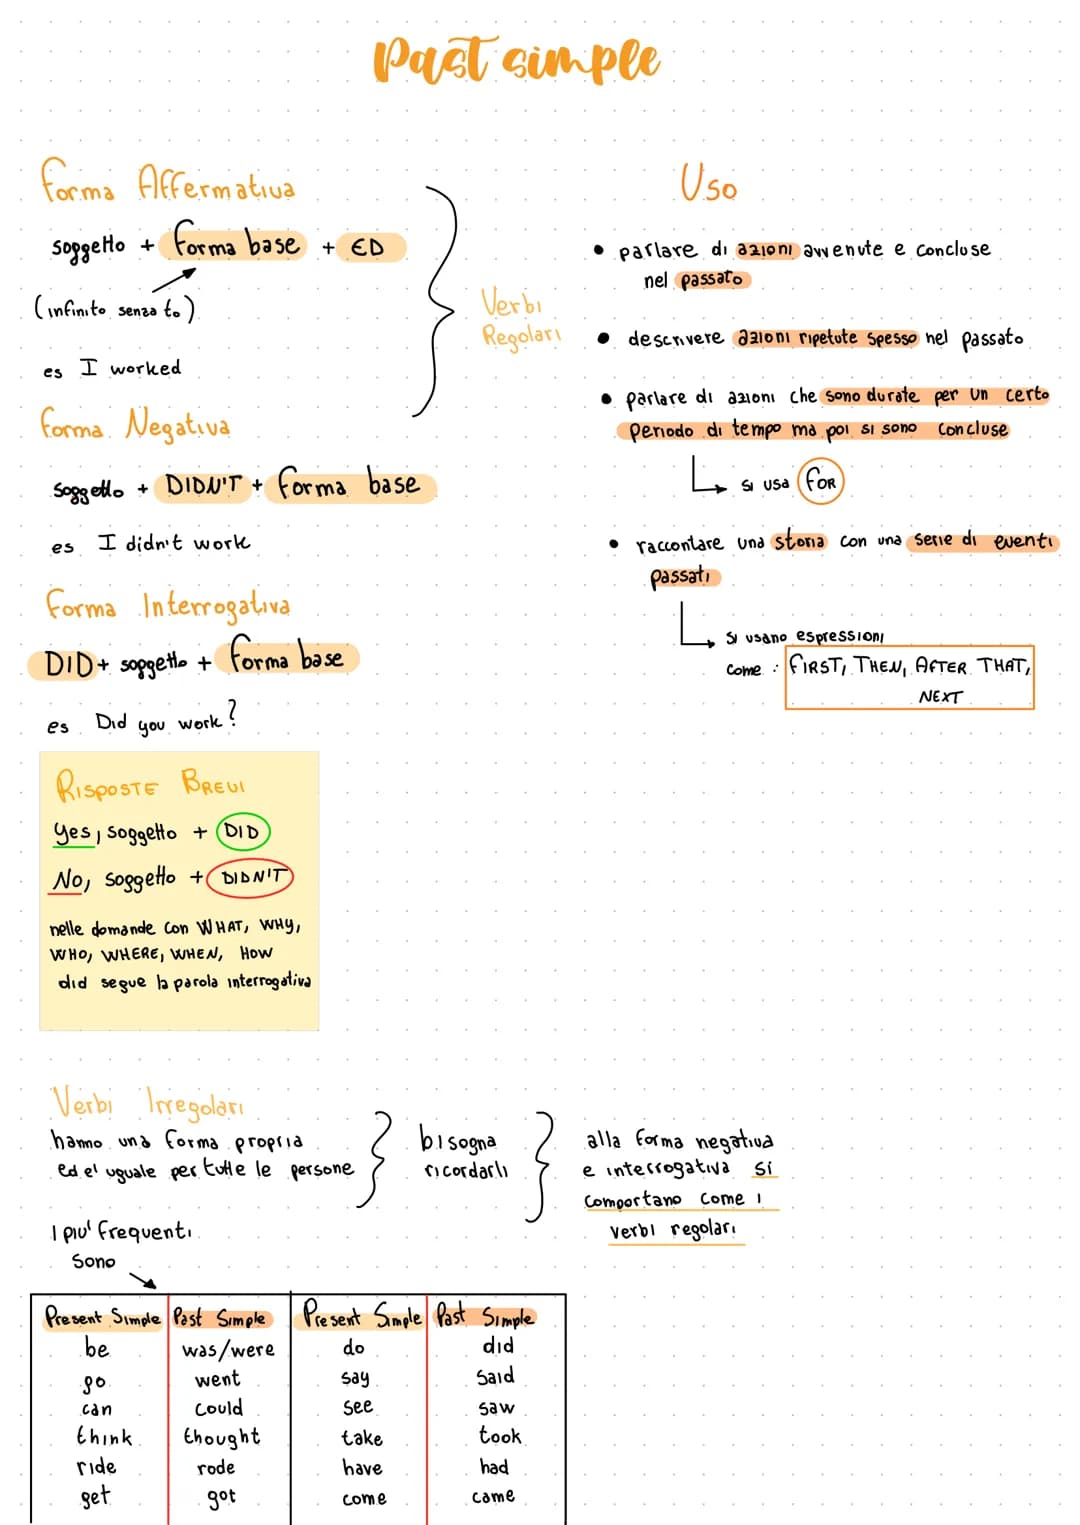 Past simple
Forma Affermativa
soggetto + forma base + ED
(infinito senza to)
es I worked
Verbi
Regolari
Forma Negativa
Soggetto + DIDN'T + forma base
es I didn't work
Forma Interrogativa
DID + soggetto + forma base
es Did you work?
RISPOSTE BREVI
Yes, soggetto + DID
No, soggetto + DIDN'T
nelle domande con WHAT, WHY,
WHO, WHERE, WHEN, HOW
did segue la parola interrogativa
Uso
• parlare di azioni avvenute e concluse
nel passato
• descrivere azioni ripetute spesso nel passato
• parlare di azioni che sono durate per un certo
periodo di tempo ma poi si sono concluse
si usa FOR
• raccontare una storia con una serie di eventi
passati
Si usano espressioni
come : FIRST, THEN, AFTER THAT,
NEXT
Verbi Irregolari
hanno una forma propria
ed e' uguale per tutte le persone
bisogna
ricordarli
alla forma negativa
e interrogativa si
comportano come i
verbi regolari
I piu' frequenti
sono
Present Simple Past Simple Present Simple Past Simple
be was/were do did
go went say said
can could see saw
think thought take took
ride rode have had
get got come came